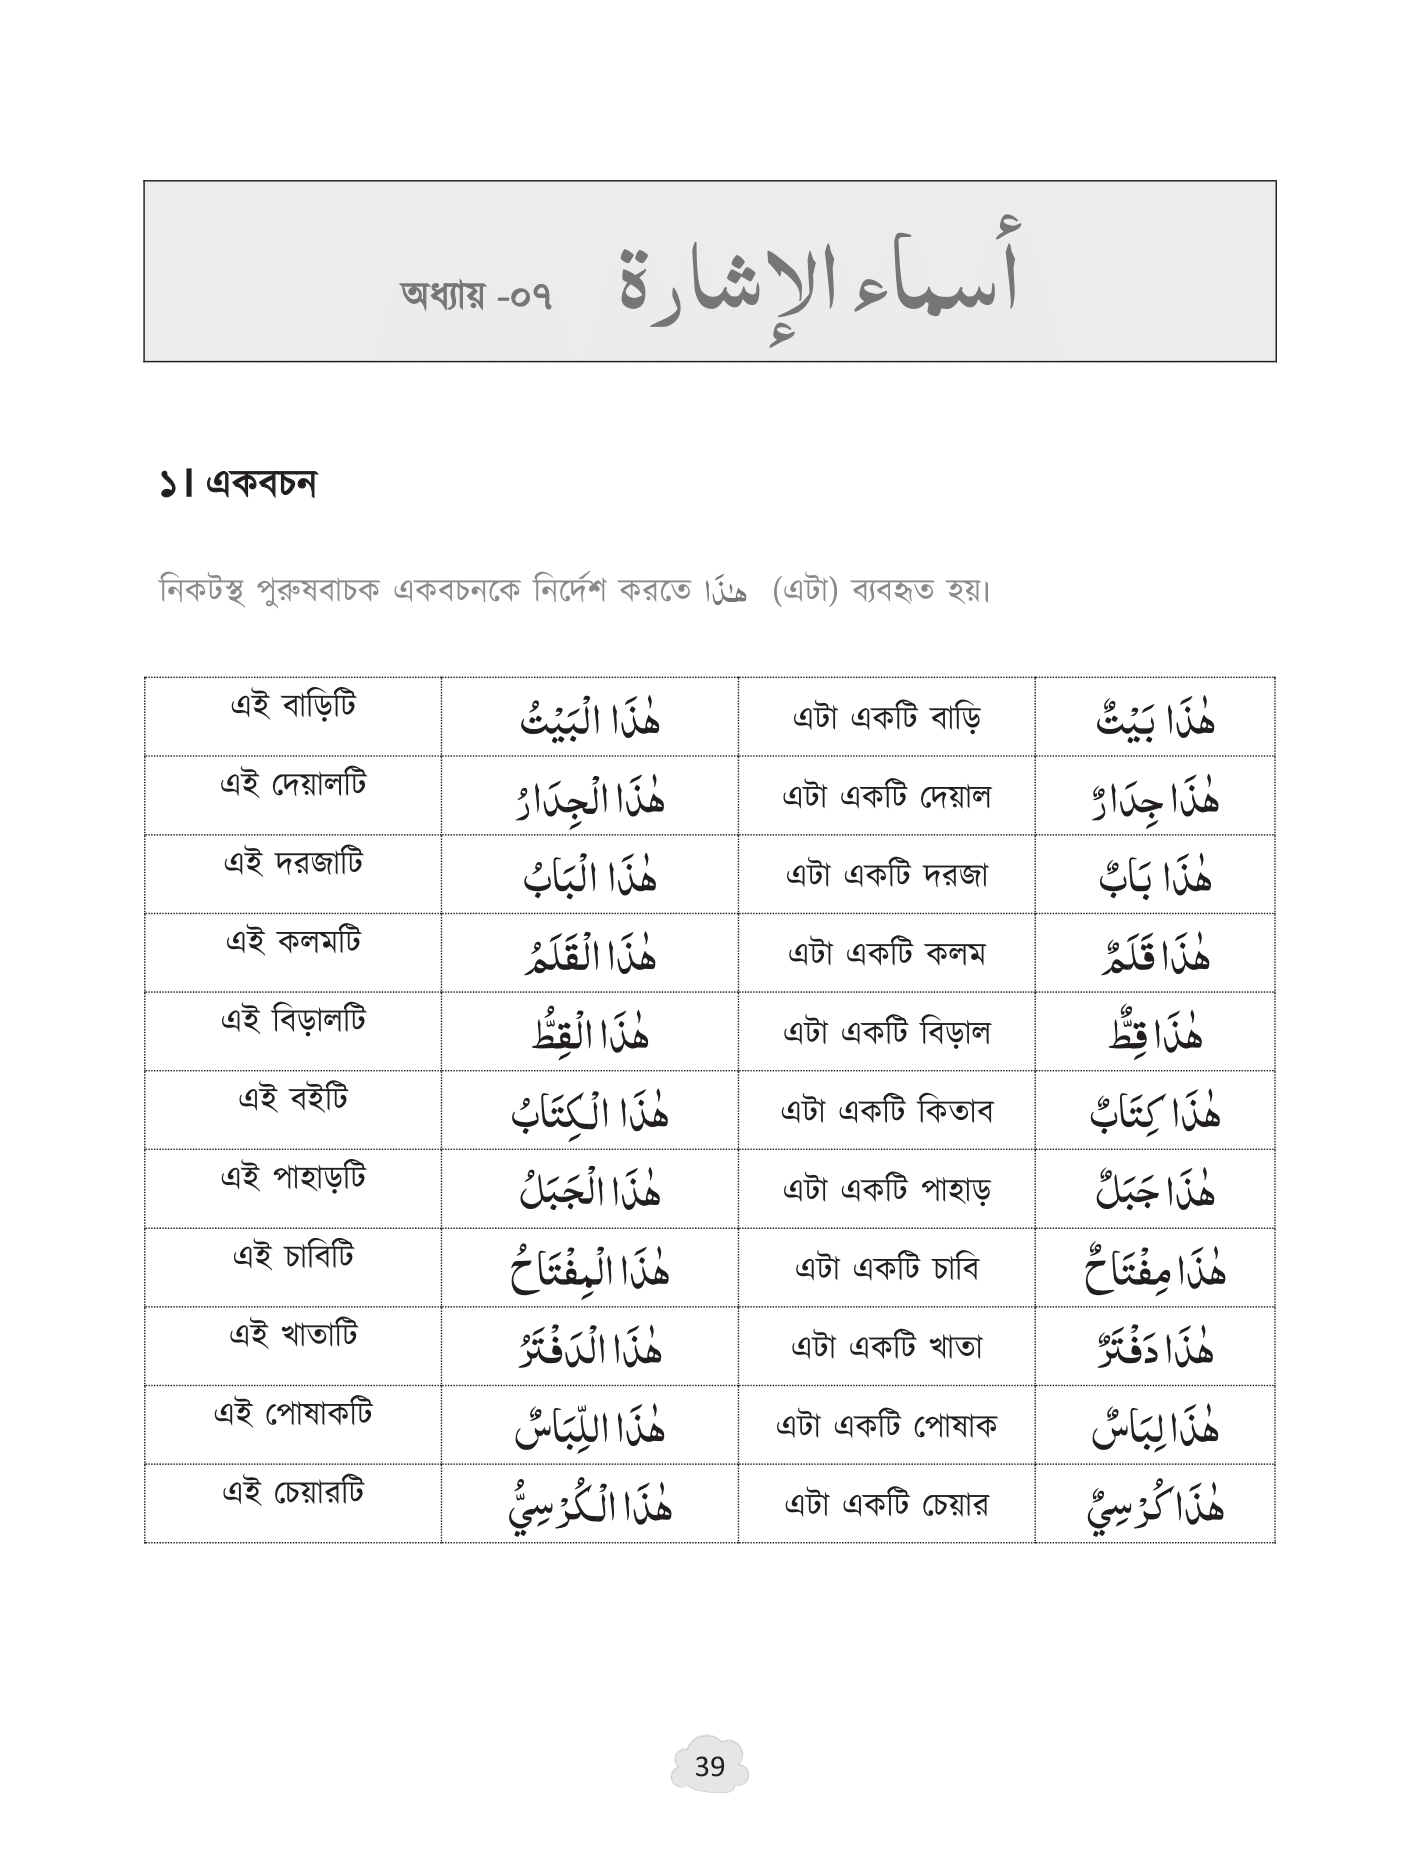 অধ্যায় -০৭ أسماء الإشارة
১। একবচন
নিকটস্থ পুরুষবাচক একবচনকে নির্দেশ করতে هٰذَا (এটা) ব্যবহৃত হয়।
এই বাড়িটি هٰذَا الْبَيْتُ এটা একটি বাড়ি هٰذَا بَيْتٌ
এই দেয়ালটি هٰذَا الْجِدَارُ এটা একটি দেয়াল هٰذَا جِدَارٌ
এই দরজাটি هٰذَا الْبَابُ এটা একটি দরজা هٰذَا بَابٌ
এই কলমটি هٰذَا الْقَلَمُ এটা একটি কলম هٰذَا قَلَمٌ
এই বিড়ালটি هٰذَا الْقِطُّ এটা একটি বিড়াল هٰذَا قِطٌّ
এই বইটি هٰذَا الْكِتَابُ এটা একটি কিতাব هٰذَا كِتَابٌ
এই পাহাড়টি هٰذَا الْجَبَلُ এটা একটি পাহাড় هٰذَا جَبَلٌ
এই চাবিটি هٰذَا الْمِفْتَاحُ এটা একটি চাবি هٰذَا مِفْتَاحٌ
এই খাতাটি هٰذَا الْدَفْتَرُ এটা একটি খাতা هٰذَا دَفْتَرٌ
এই পোষাকটি هٰذَا اللِّبَاسٌ এটা একটি পোষাক هٰذَا لِبَاسٌ
এই চেয়ারটি هٰذَا الْكُرْسِيُّ এটা একটি চেয়ার هٰذَا كُرْسِيٌّ
39